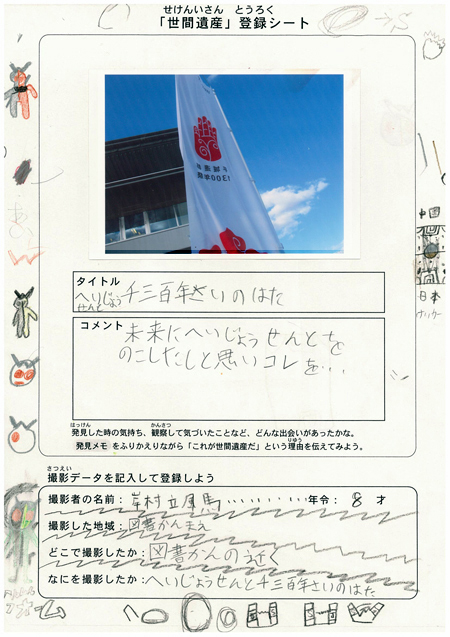 せけんいさん とうろく
「世間遺産」登録シート
1300年祭
タイトル
へいじょう千三百年さいのはた
せんと
コメント
未来にへいじょうせんとを
のこしたしと思いコレを・・・
中国
日本
はっけん かんさつ
発見した時の気持ち、観察して気づいたことなど、どんな出会いがあったかな。
りゆう
発見メモをふりかえりながら「これが世間遺産だ」という理由を伝えてみよう。
さつえい
撮影データを記入して登録しよう
撮影者の名前：岸村立風馬・・・・・・・・・・年令：8才
撮影した地域：図書かんまえ
どこで撮影したか：図書かんのちかく
なにを撮影したか：へいじょうせんと千三百年さいのはた